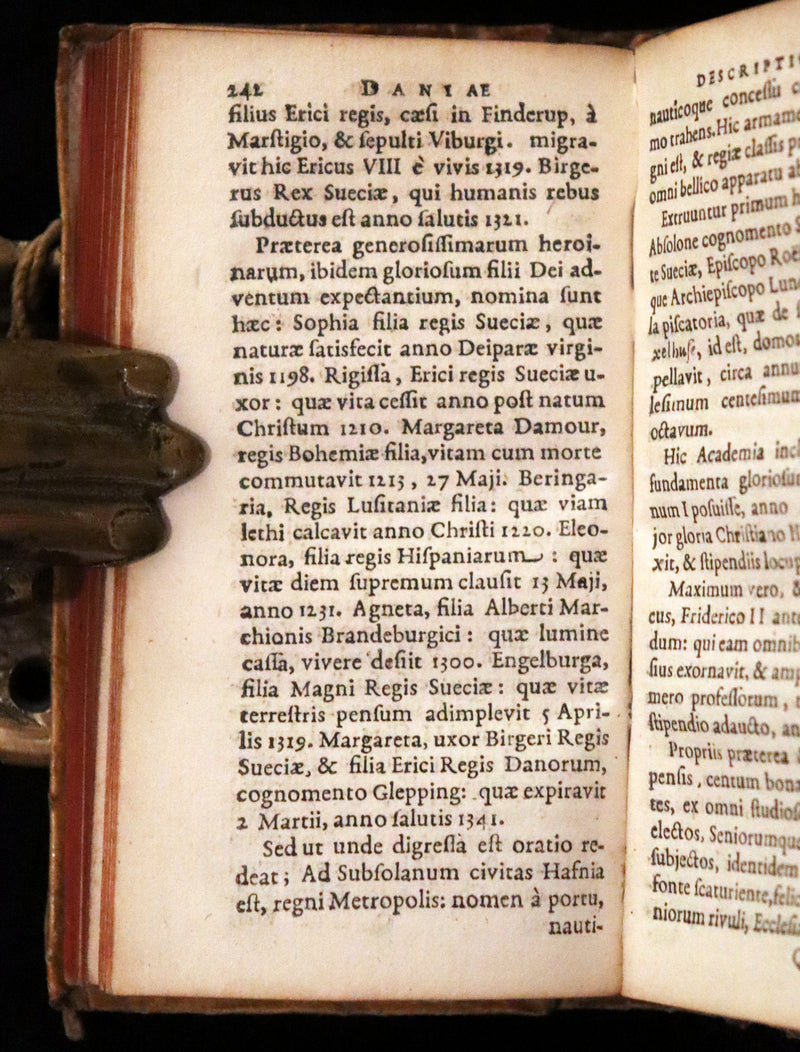 242 DANIAE
filius Erici regis, cæſi in Finderup, à
Marſtigio, & ſepulti Viburgi. migra-
vit hic Ericus VIII è vivis 1319. Birge-
rus Rex Sueciæ, qui humanis rebus
ſubductus eſt anno ſalutis 1321.
Præterea generoſiſſimarum heroi-
narum, ibidem glorioſum filii Dei ad-
ventum expectantium, nomina ſunt
hæc: Sophia filia regis Sueciæ, quæ
naturæ ſatisfecit anno Deiparæ virgi-
nis 1198. Rigiſſa, Erici regis Sueciæ u-
xor: quæ vita ceſſit anno poſt natum
Chriſtum 1210. Margareta Damour,
regis Bohemiæ filia, vitam cum morte
commutavit 1213, 27 Maji. Beringa-
ria, Regis Luſitaniæ filia: quæ viam
lethi calcavit anno Chriſti 1220. Eleo-
nora, filia regis Hiſpaniarum : quæ
vitæ diem ſupremum clauſit 13 Maji,
anno 1231. Agneta, filia Alberti Mar-
chionis Brandeburgici: quæ lumine
caſſa, vivere deſiit 1300. Engelburga,
filia Magni Regis Sueciæ: quæ vitæ
terreſtris penſum adimplevit 5 Apri-
lis 1319. Margareta, uxor Birgeri Regis
Sueciæ, & filia Erici Regis Danorum,
cognomento Glepping: quæ expiravit
2 Martii, anno ſalutis 1341.
Sed ut unde digreſſa eſt oratio re-
deat; Ad Subſolanum civitas Hafnia
eſt, regni Metropolis: nomen à portu,
nauti-
DESCRIPTI
nauticoque conceſſu
mo trahens. Hic armam
gni eſt, & regiæ claſſis
omni bellico apparatu
Extruuntur primum
Abſolone cognomento
te Sueciæ, Epiſcopo
que Archiepiſcopo
la piſcatoria, quæ de
xelhuſe, id eſt, domo
pellavit, circa annu
leſimum centeſimum
octavum.
Hic Academia
fundamenta glorioſu
num I poſuiſſe, anno
jor gloria Chriſtiano
xit, & ſtipendiis
Maximum vero,
cus, Friderico II
dum: qui eam omnib
ſius exornavit, &
mero profeſſorum,
ſtipendio adaucto, an
Propriis præterea
penſis, centum
tes, ex omni ſtudioſ
electos, Seniorumqu
ſubjectos, identidem
fonte ſcaturiente,
niorum rivuli,